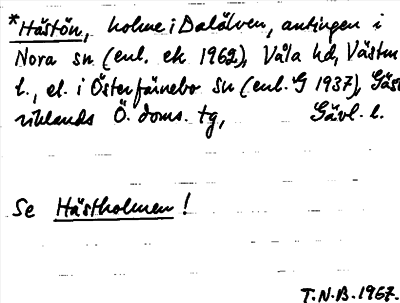 *Hästön, holme i Dalälven, antingen i
Nora sn (enl. ek 1962), Våla hd, Västm
l., el. i Österfärnebo sn (enl. G 1937), Gäst
riklands Ö. doms. tg, Gävl. l.
Se Hästholmen!
T.N.B. 1967.